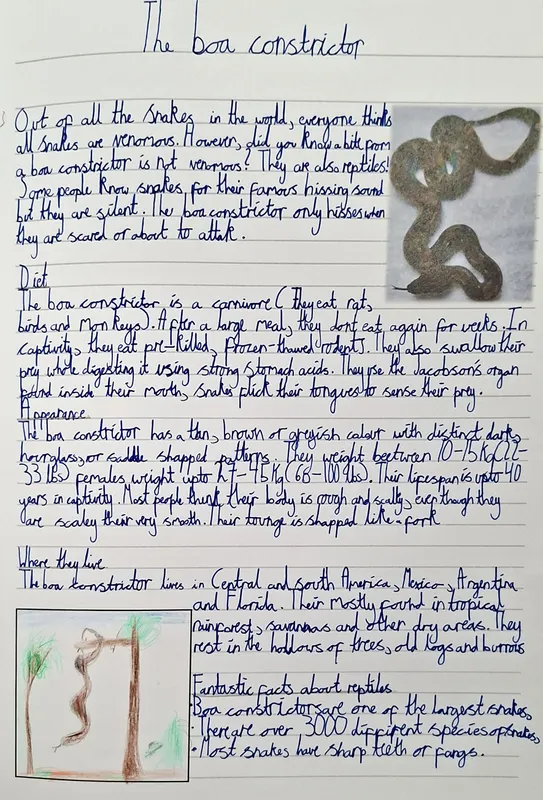 The boa constrictor
Out of all the snakes in the world, everyone thinks
all snakes are venomous. However, did you know a bite from
a boa constrictor is not venomous? They are also reptiles!
Some people know snakes, for their famous hissing sound
but they are silent. The boa constrictor only hisses when
they are scared or about to attak.
Diet
The boa constrictor is a carnivore (They eat rat,
birds and monkeys). After a large meal, they dont eat again for weeks. In
captivity, they eat pre-killed, frozen-thawed rodents. They also swallow their
prey whole digesting it using strong stomach acids. They use the Jacobson's organ
found inside their mouth, snakes flick their tongues to sense their prey.
Appearance
The boa constrictor has a tan, brown or greyish colour with distinct dark,
hourglass, or saddle shapped patterns. They weight beetween 10-15Kg(22-
33 lbs) females wright upto 27-45Kg (68-100 lbs). Their lifespan is upto 40
years in captivity. Most people think their body is rough and scally, even though they
are scaley their very smooth. Their tounge is shapped like a fork
Where they live
The boa constrictor lives in Central and south America, Mexico, Argentina
and Florida. Their mostly found in tropical
rainforest, savannas and other dry areas. They
rest in the hollows of trees, old logs and burrows
Fantastic facts about reptiles
• Boa constrictors are one of the largest snakes,
• There are over 3000 different species of snakes,
• Most snakes have sharp teeth or fangs.